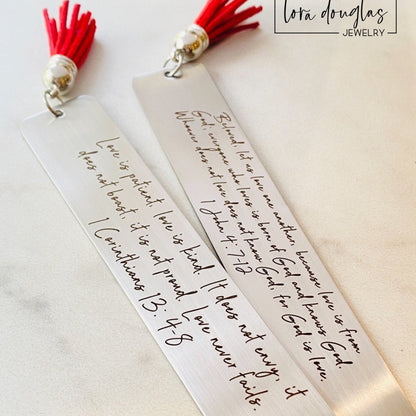 lora douglas
JEWELRY
Love is patient, love is kind. It does not envy, it
does not boast, it is not proud. Love never fails.
1 Corinthians 13: 4-8
Beloved, let us love one another, because love is from
God; everyone who loves is born of God and knows God.
Whoever does not love does not know God, for God is love.
1 John 4: 7-12